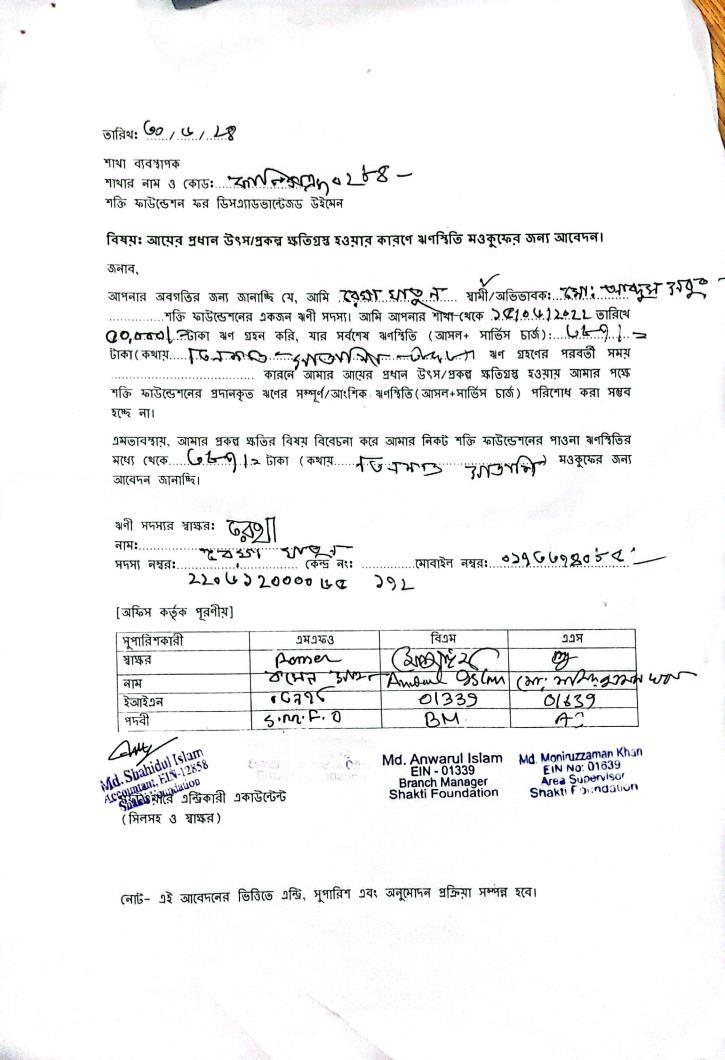 তারিখ: ৩০/৬/২৪
শাখা ব্যবস্থাপক
শাখার নাম ও কোড: ০২৮৪
শক্তি ফাউন্ডেশন ফর ডিসএ্যাডভান্টেজড উইমেন
বিষয়: আয়ের প্রধান উৎস/প্রকল্প ক্ষতিগ্রস্ত হওয়ার কারণে ঋণস্থিতি মওকুফের জন্য আবেদন।
জনাব,
আপনার অবগতির জন্য জানাচ্ছি যে, আমি রেখা খাতুন স্বামী/অভিভাবক: মো: আব্দুস
শক্তি ফাউন্ডেশনের একজন ঋণী সদস্য। আমি আপনার শাখা থেকে তারিখে
টাকা ঋণ গ্রহন করি, যার সর্বশেষ ঋণস্থিতি (আসল+ সার্ভিস চার্জ): ৩৮৭/=
টাকা (কথায় তিনশত সাতাশি টাকা ঋণ গ্রহণের পরবর্তী সময়
কারনে আমার আয়ের প্রধান উৎস/প্রকল্প ক্ষতিগ্রস্ত হওয়ায় আমার পক্ষে
শক্তি ফাউন্ডেশনের প্রদানকৃত ঋণের সম্পূর্ণ/আংশিক ঋণস্থিতি(আসল+সার্ভিস চার্জ) পরিশোধ করা সম্ভব
হচ্ছে না।
এমতাবস্থায়, আমার প্রকল্প ক্ষতির বিষয় বিবেচনা করে আমার নিকট শক্তি ফাউন্ডেশনের পাওনা ঋণস্থিতির
মধ্যে থেকে ৩৮৭/= টাকা (কথায় তিনশত সাতাশি) মওকুফের জন্য
আবেদন জানাচ্ছি।
ঋণী সদস্যর স্বাক্ষর: রেখা
নাম: রেখা খাতুন
সদস্য নম্বর: কেন্দ্র নং: মোবাইল নম্বর:
১৯২
[অফিস কর্তৃক পূরণীয়]
সুপারিশকারী এমএফও বিএম এএস
স্বাক্ষর
নাম Anwarul Islam
ইআইএন 01339 01639
পদবী S.M.F.O BM AS
Md. Shahidul Islam
Accountant, EIN-12858
Shakti Foundation
এন্ট্রিকারী একাউন্টেন্ট
(সিলসহ ও স্বাক্ষর)
Md. Anwarul Islam
EIN - 01339
Branch Manager
Shakti Foundation
Md. Moniruzzaman Khan
EIN No: 01639
Area Supervisor
Shakti Foundation
নোট- এই আবেদনের ভিত্তিতে এন্ট্রি, সুপারিশ এবং অনুমোদন প্রক্রিয়া সম্পন্ন হবে।